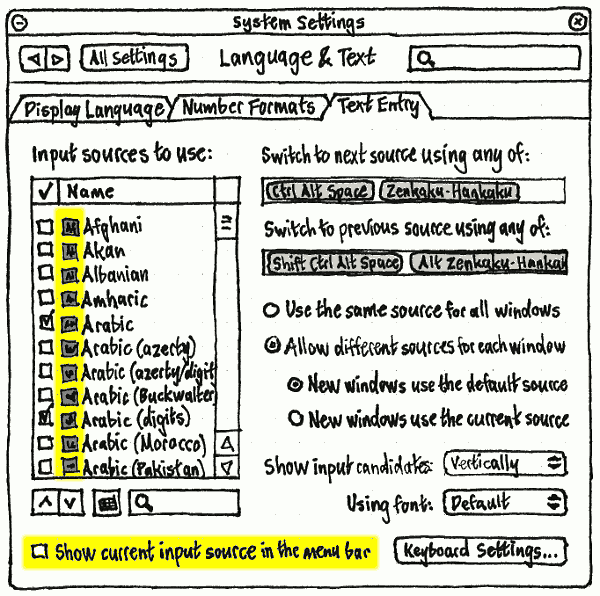 System Settings
All Settings
Language & Text
Display Language
Number Formats
Text Entry
Input sources to use:
Name
Afghani
Akan
Albanian
Amharic
Arabic
Arabic (azerty)
Arabic (azerty/digit
Arabic (Buckwalter)
Arabic (digits)
Arabic (Morocco)
Arabic (Pakistan)
Show current input source in the menu bar
Switch to next source using any of:
Ctrl Alt Space
Zenkaku-Hankaku
Switch to previous source using any of:
Shift Ctrl Alt Space
Alt Zenkaku-Hankak
Use the same source for all windows
Allow different sources for each window
New windows use the default source
New windows use the current source
Show input candidates: Vertically
Using font: Default
Keyboard Settings...